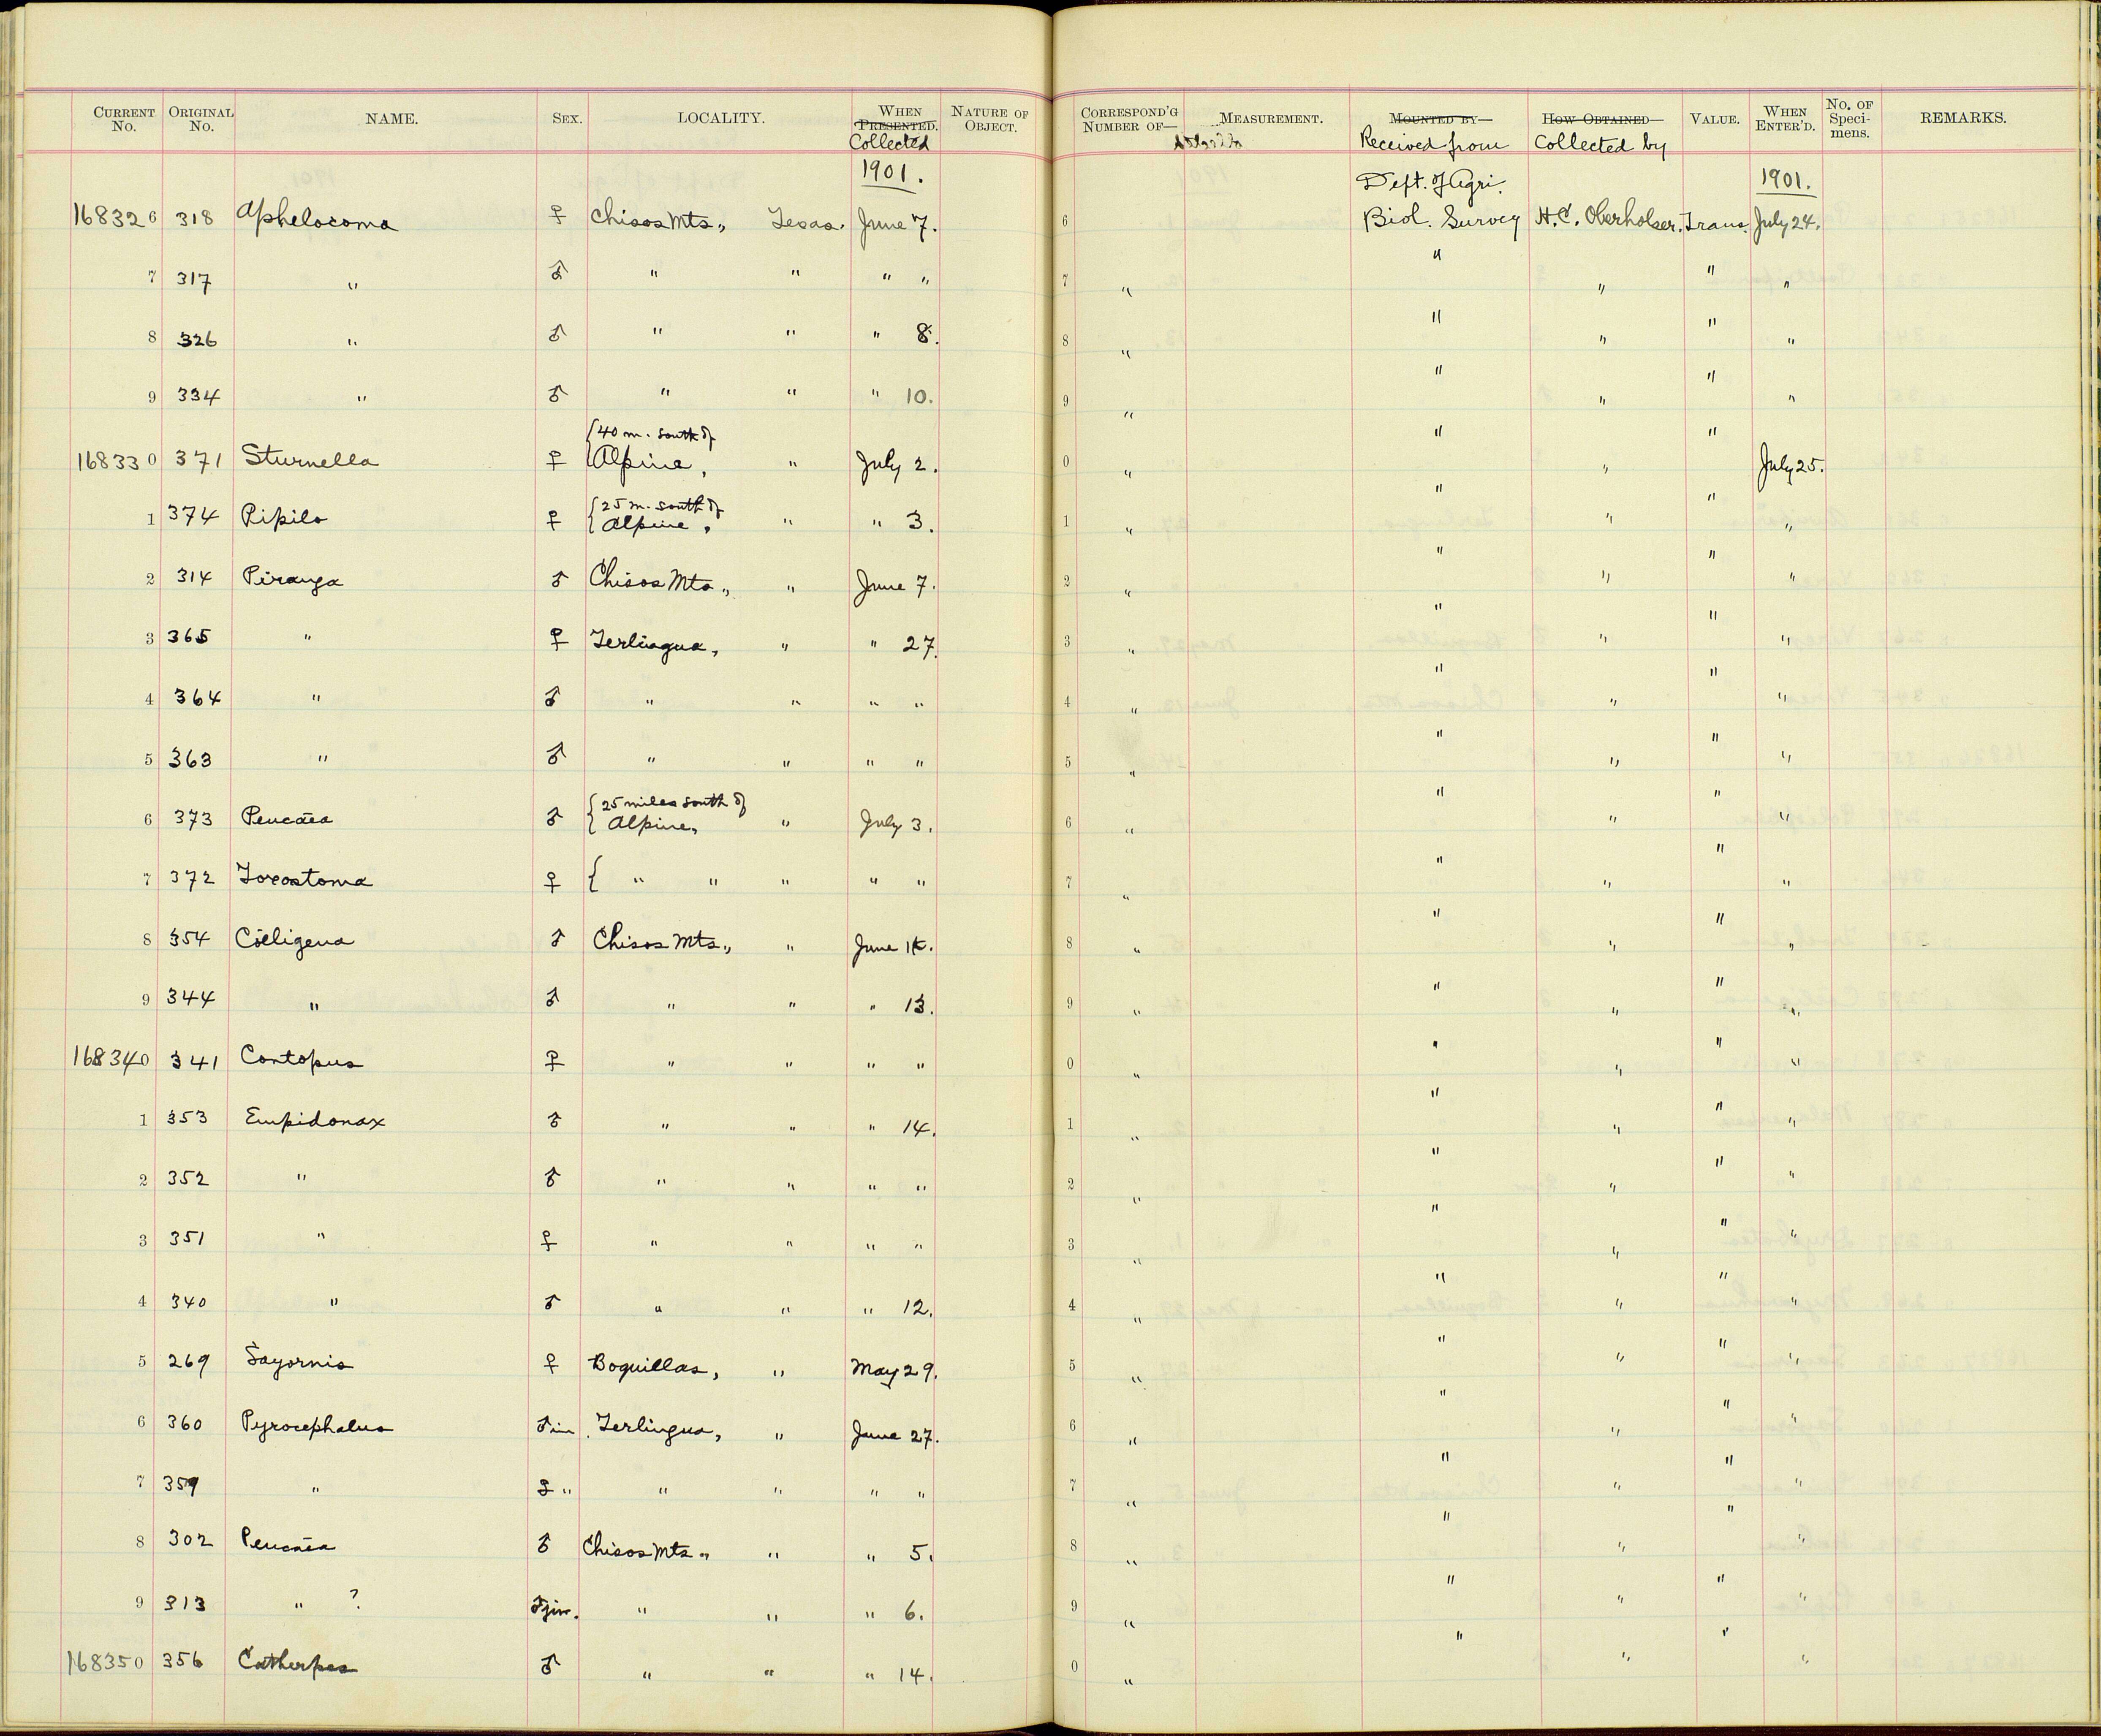 CURRENT No. ORIGINAL No. NAME. SEX. LOCALITY. WHEN PRESENTED. Collected NATURE OF OBJECT. CORRESPOND'G NUMBER OF— MEASUREMENT. MOUNTED BY— Received from HOW OBTAINED— Collected by VALUE. WHEN ENTER'D. No. OF Speci- mens. REMARKS.
1901. Dept. of Agri. 1901.
168326 318 Aphelocoma ♀ Chisos Mts., Texas. June 7. 6 Biol. Survey H.C. Oberholser. Trans. July 24.
7 317 " ♂ " " " " 7 " " " " "
8 326 " ♂ " " " 8. 8 " " " " "
9 334 " ♂ " " " 10. 9 " " " " "
168330 371 Sturnella ♀ {40 m. south of Alpine, " July 2. 0 " " " " July 25.
1 374 Pipilo ♀ {25 m. south of Alpine, " " 3. 1 " " " " "
2 314 Piranga ♂ Chisos Mts., " June 7. 2 " " " " "
3 365 " ♀ Terlingua, " " 27. 3 " " " " "
4 364 " ♂ " " " " 4 " " " " "
5 363 " ♂ " " " " 5 " " " " "
6 373 Peucæa ♂ {25 miles south of Alpine, " July 3. 6 " " " " "
7 372 Toxostoma ♀ { " " " " " 7 " " " " "
8 354 Cœligena ♂ Chisos Mts., " June 14. 8 " " " " "
9 344 " ♂ " " " 13. 9 " " " " "
168340 341 Contopus ♀ " " " " 0 " " " " "
1 353 Empidonax ♂ " " " 14. 1 " " " " "
2 352 " ♂ " " " " 2 " " " " "
3 351 " ♀ " " " " 3 " " " " "
4 340 " ♂ " " " 12. 4 " " " " "
5 269 Sayornis ♀ Boquillas, " May 29. 5 " " " " "
6 360 Pyrocephalus ♂ im. Terlingua, " June 27. 6 " " " " "
7 359 " ♀ " " " " " 7 " " " " "
8 302 Peucæa ♂ Chisos Mts., " " 5. 8 " " " " "
9 313 " ? ♂ juv. " " " 6. 9 " " " " "
168350 356 Catherpes ♂ " " " 14. 0 " " " " "